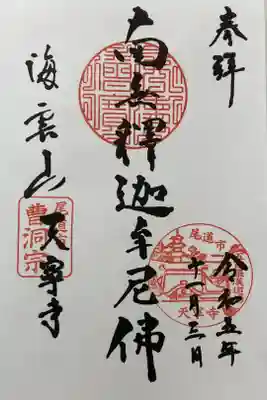 奉拜
令和五年
十一月三日
南無釋迦牟尼佛
海雲山
天寧寺
尾道市
天寧寺
曹洞宗